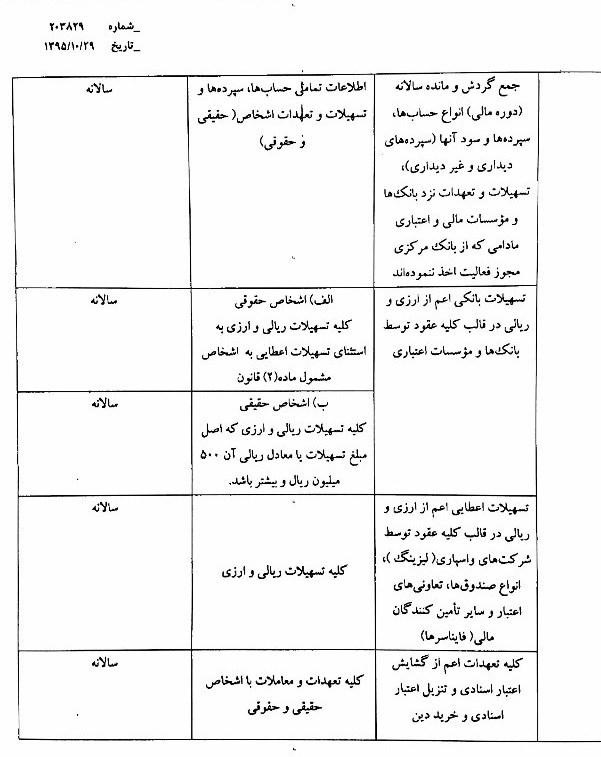 _شماره ۲۰۳۸۲۹
_تاریخ ۱۳۹۵/۱۰/۲۹
جمع گردش و مانده سالانه
(دوره مالی) انواع حساب‌ها،
سپرده‌ها و سود آنها (سپرده‌های
دیداری و غیر دیداری)،
تسهیلات و تعهدات نزد بانک‌ها
و مؤسسات مالی و اعتباری
مادامی که از بانک مرکزی
مجوز فعالیت اخذ ننموده‌اند
اطلاعات تمامی حساب‌ها، سپرده‌ها و
تسهیلات و تعهدات اشخاص( حقیقی
و حقوقی)
سالانه
تسهیلات بانکی اعم از ارزی و
ریالی در قالب کلیه عقود توسط
بانک‌ها و مؤسسات اعتباری
الف) اشخاص حقوقی
کلیه تسهیلات ریالی و ارزی به
استثنای تسهیلات اعطایی به اشخاص
مشمول ماده(۲) قانون
سالانه
ب) اشخاص حقیقی
کلیه تسهیلات ریالی و ارزی که اصل
مبلغ تسهیلات یا معادل ریالی آن ۵۰۰
میلیون ریال و بیشتر باشد.
سالانه
تسهیلات اعطایی اعم از ارزی و
ریالی در قالب کلیه عقود توسط
شرکت‌های واسپاری( لیزینگ )،
انواع صندوق‌ها، تعاونی‌های
اعتبار و سایر تأمین کنندگان
مالی( فایناسرها)
کلیه تسهیلات ریالی و ارزی
سالانه
کلیه تعهدات اعم از گشایش
اعتبار اسنادی و تنزیل اعتبار
اسنادی و خرید دین
کلیه تعهدات و معاملات با اشخاص
حقیقی و حقوقی
سالانه